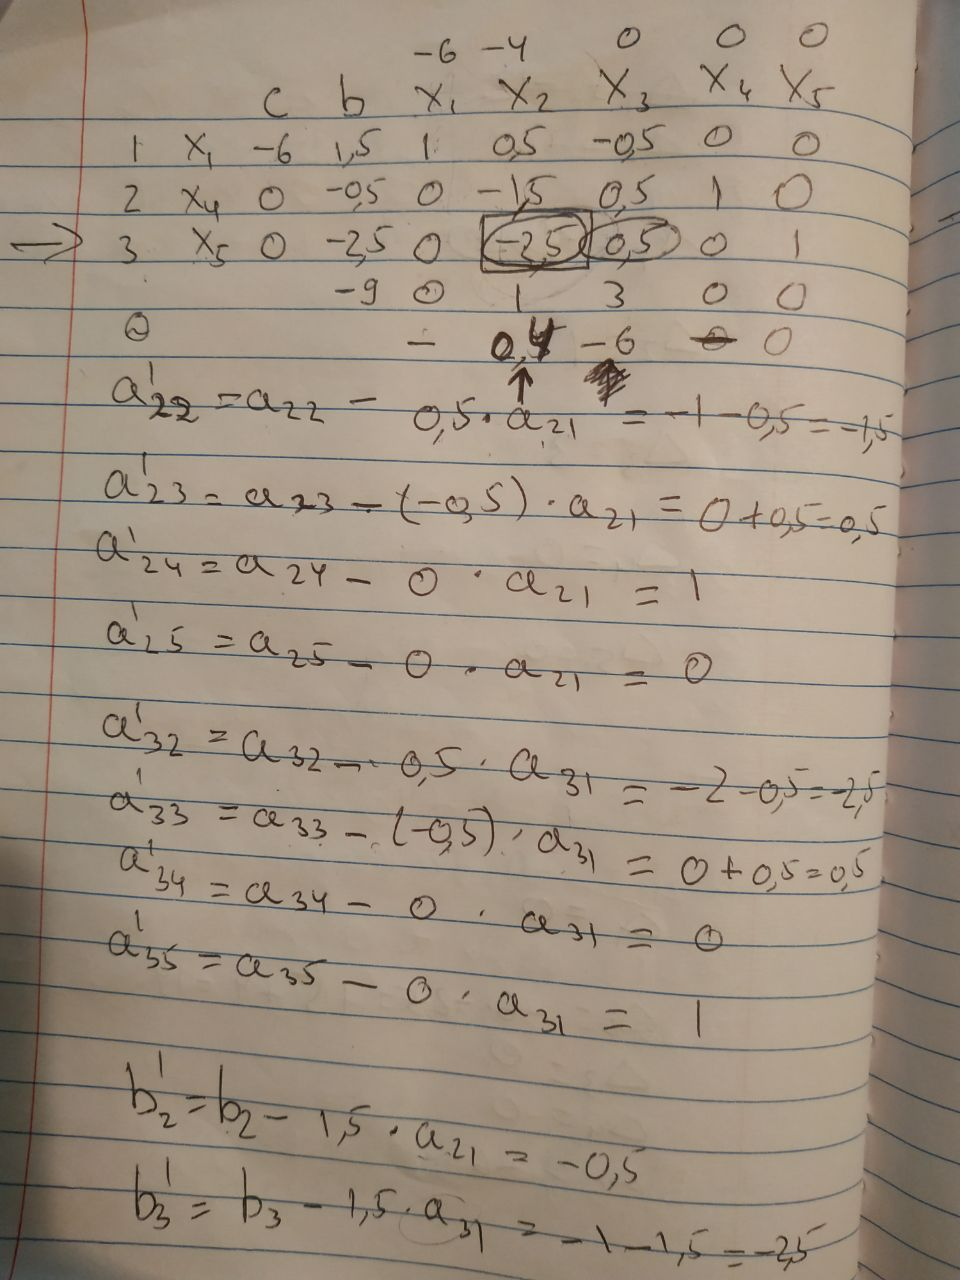 -6 -4 0 0 0
c b x₁ x₂ x₃ x₄ x₅
1 x₁ -6 1,5 1 0,5 -0,5 0 0
2 x₄ 0 -0,5 0 -1,5 0,5 1 0
⇒ 3 x₅ 0 -2,5 0 -2,5 0,5 0 1
-9 0 1 3 0 0
0 - 0,4 -6 0 0
a'₂₂ = a₂₂ - 0,5 · a₂₁ = -1 - 0,5 = -1,5
a'₂₃ = a₂₃ - (-0,5) · a₂₁ = 0 + 0,5 = 0,5
a'₂₄ = a₂₄ - 0 · a₂₁ = 1
a'₂₅ = a₂₅ - 0 · a₂₁ = 0
a'₃₂ = a₃₂ - 0,5 · a₃₁ = -2 - 0,5 = -2,5
a'₃₃ = a₃₃ - (-0,5) · a₃₁ = 0 + 0,5 = 0,5
a'₃₄ = a₃₄ - 0 · a₃₁ = 0
a'₃₅ = a₃₅ - 0 · a₃₁ = 1
b'₂ = b₂ - 1,5 · a₂₁ = -0,5
b'₃ = b₃ - 1,5 · a₃₁ = -1 - 1,5 = -2,5